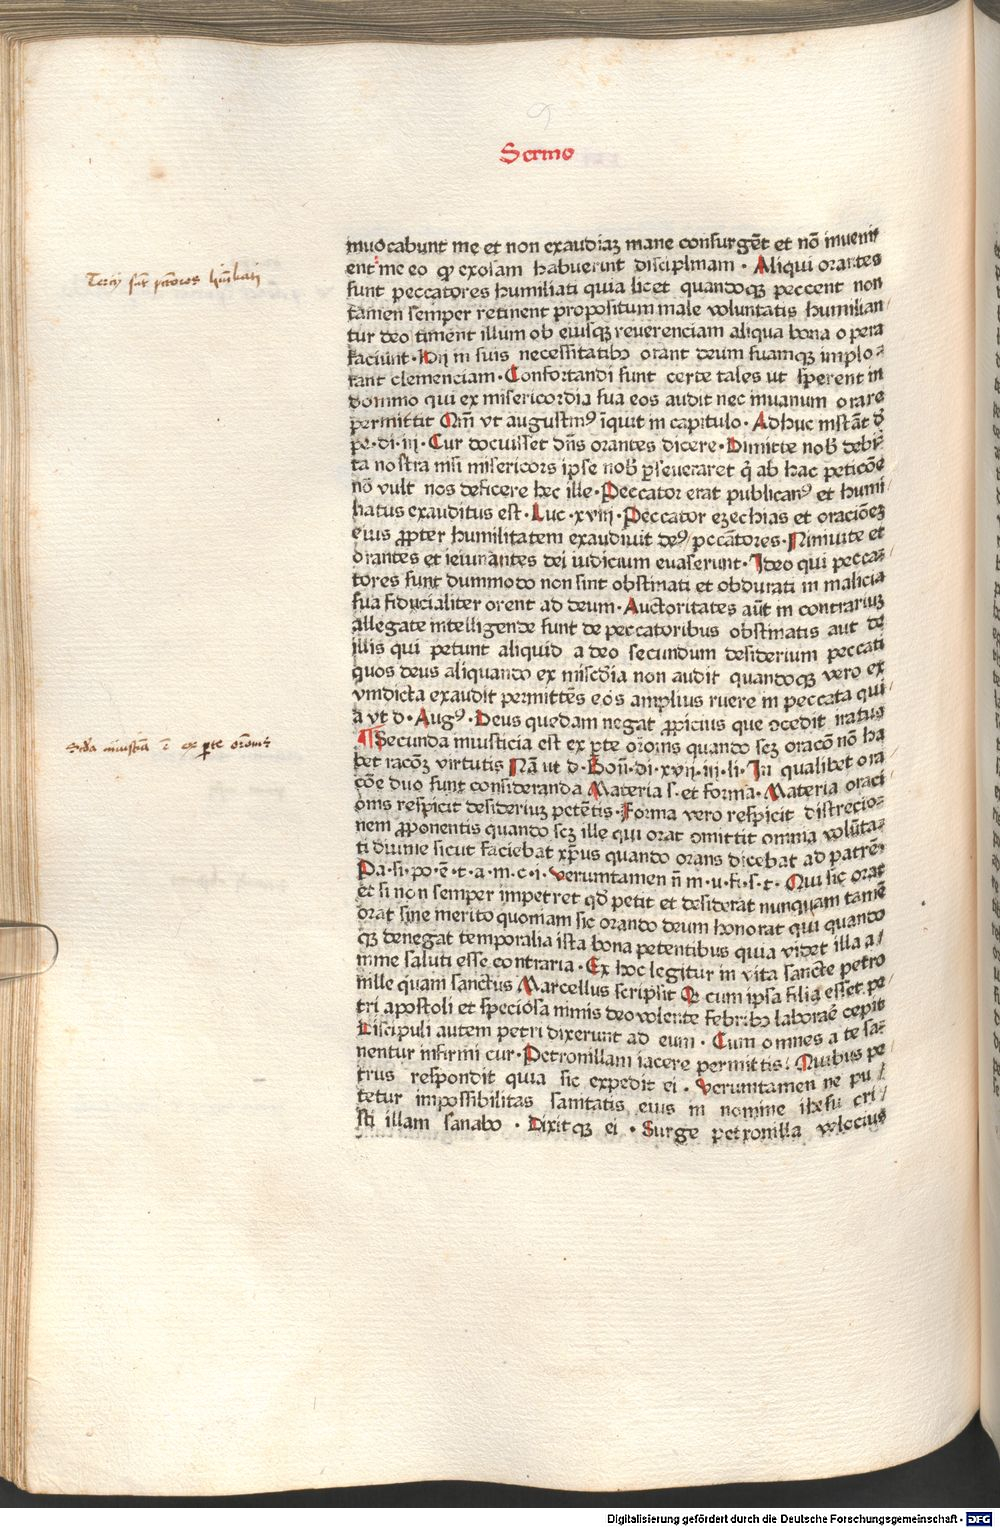 Sermo
inuocabunt me et non exaudiaʒ mane consurgēt et nō inueni
ent me eo ꝙ exosam habuerint disciplinam · Aliqui orantes
sunt peccatores humiliati quia licet quandoqʒ peccent non
tamen semper retinent propositum male voluntatis humilian
tur deo timent illum ob eiusqʒ reuerenciam aliqua bona opera
faciunt · Hij in suis necessitatibꝫ orant deum suamqʒ implo
rant clemenciam · Confortandi sunt certe tales ut sperent in
domino qui ex misericordia sua eos audit nec inuanum orare
permittit Nā vt augustinꝰ īquit in capitulo · Adhuc instāt d̄
pe · di · iij · Cur docuisset dn̄s orantes dicere · Dimitte nob̄ debi
ta nostra nisi misericors ipse nob̄ ꝑseueraret q̄ ab hac peticōe
nō vult nos deficere hec ille · Peccator erat publicanꝰ et humi
liatus exauditus est · Luc · xviij · Peccator ezechias et oraciōeʒ
eius ꝓpter humilitatem exaudiuit deꝰ / pccātores · Niniuite et
orantes et ieiunantes dei iudicium euaserunt · Ideo qui pecca
tores sunt dummodo non sint obstinati et obdurati in malicia
sua fiducialiter orent ad deum · Auctoritates aūt in contrariuʒ
allegate intelligende sunt de peccatoribus obstinatis aut de
illis qui petunt aliquid a deo secundum desiderium peccati
quos deus aliquando ex miscdīa non audit quandoqʒ vero ex
vindicta exaudit permittēs eos amplius ruere in peccata qui
a vt d · Augꝰ · Deus quedam negat ꝓpicius que ꝯcedit iratus
¶ Secunda iniusticia est ex ꝑte orōnis quando scʒ oracōn nō ha
bet racōʒ virtutis Nā ut d · Bon̄ · di · xvij · iij · li · In qualibet ora
cōe duo sunt consideranda Materia s · et forma · Materia oraci
onis respicit desideriuʒ petētis · Forma vero respicit discrecio
nem ꝓponentis quando scʒ ille qui orat omittit omnia volūta
ti diuine sicut faciebat xp̄us quando orans dicebat ad patrē
Pa · si · po · ē · t · a · m · c · i · Verumtamen n̄ m · u · fi · s · t · Qui sic orat
et si non semper impetret qd̄ petit et desiderat nunquam tamē
orat sine merito quoniam sic orando deum honorat qui quando
qʒ denegat temporalia ista bona petentibus quia videt illa a
nime saluti esse contraria · Ex hoc legitur in vita sancte petro
nille quam sanctus Marcellus scripsit Q̄ cum ipsa filia esset pe
tri apostoli et speciosa nimis deo volente febribꝫ laborare cepit
Discipuli autem petri dixerunt ad eum · Cum omnes a te sa
nentur infirmi cur · Petronillam iacere permittis · Quibus pe
trus respondit quia sic expedit ei · Verumtamen ne pu
tetur impossibilitas sanitatis eius in nomine ihesu cri
sti illam sanabo · Dixitqʒ ei · Surge petronilla velocius
Tercij sūt pctōres humiliati
Scd̄a iniusticia ē ex ꝑte orōnis
Digitalisierung gefördert durch die Deutsche Forschungsgemeinschaft - DFG